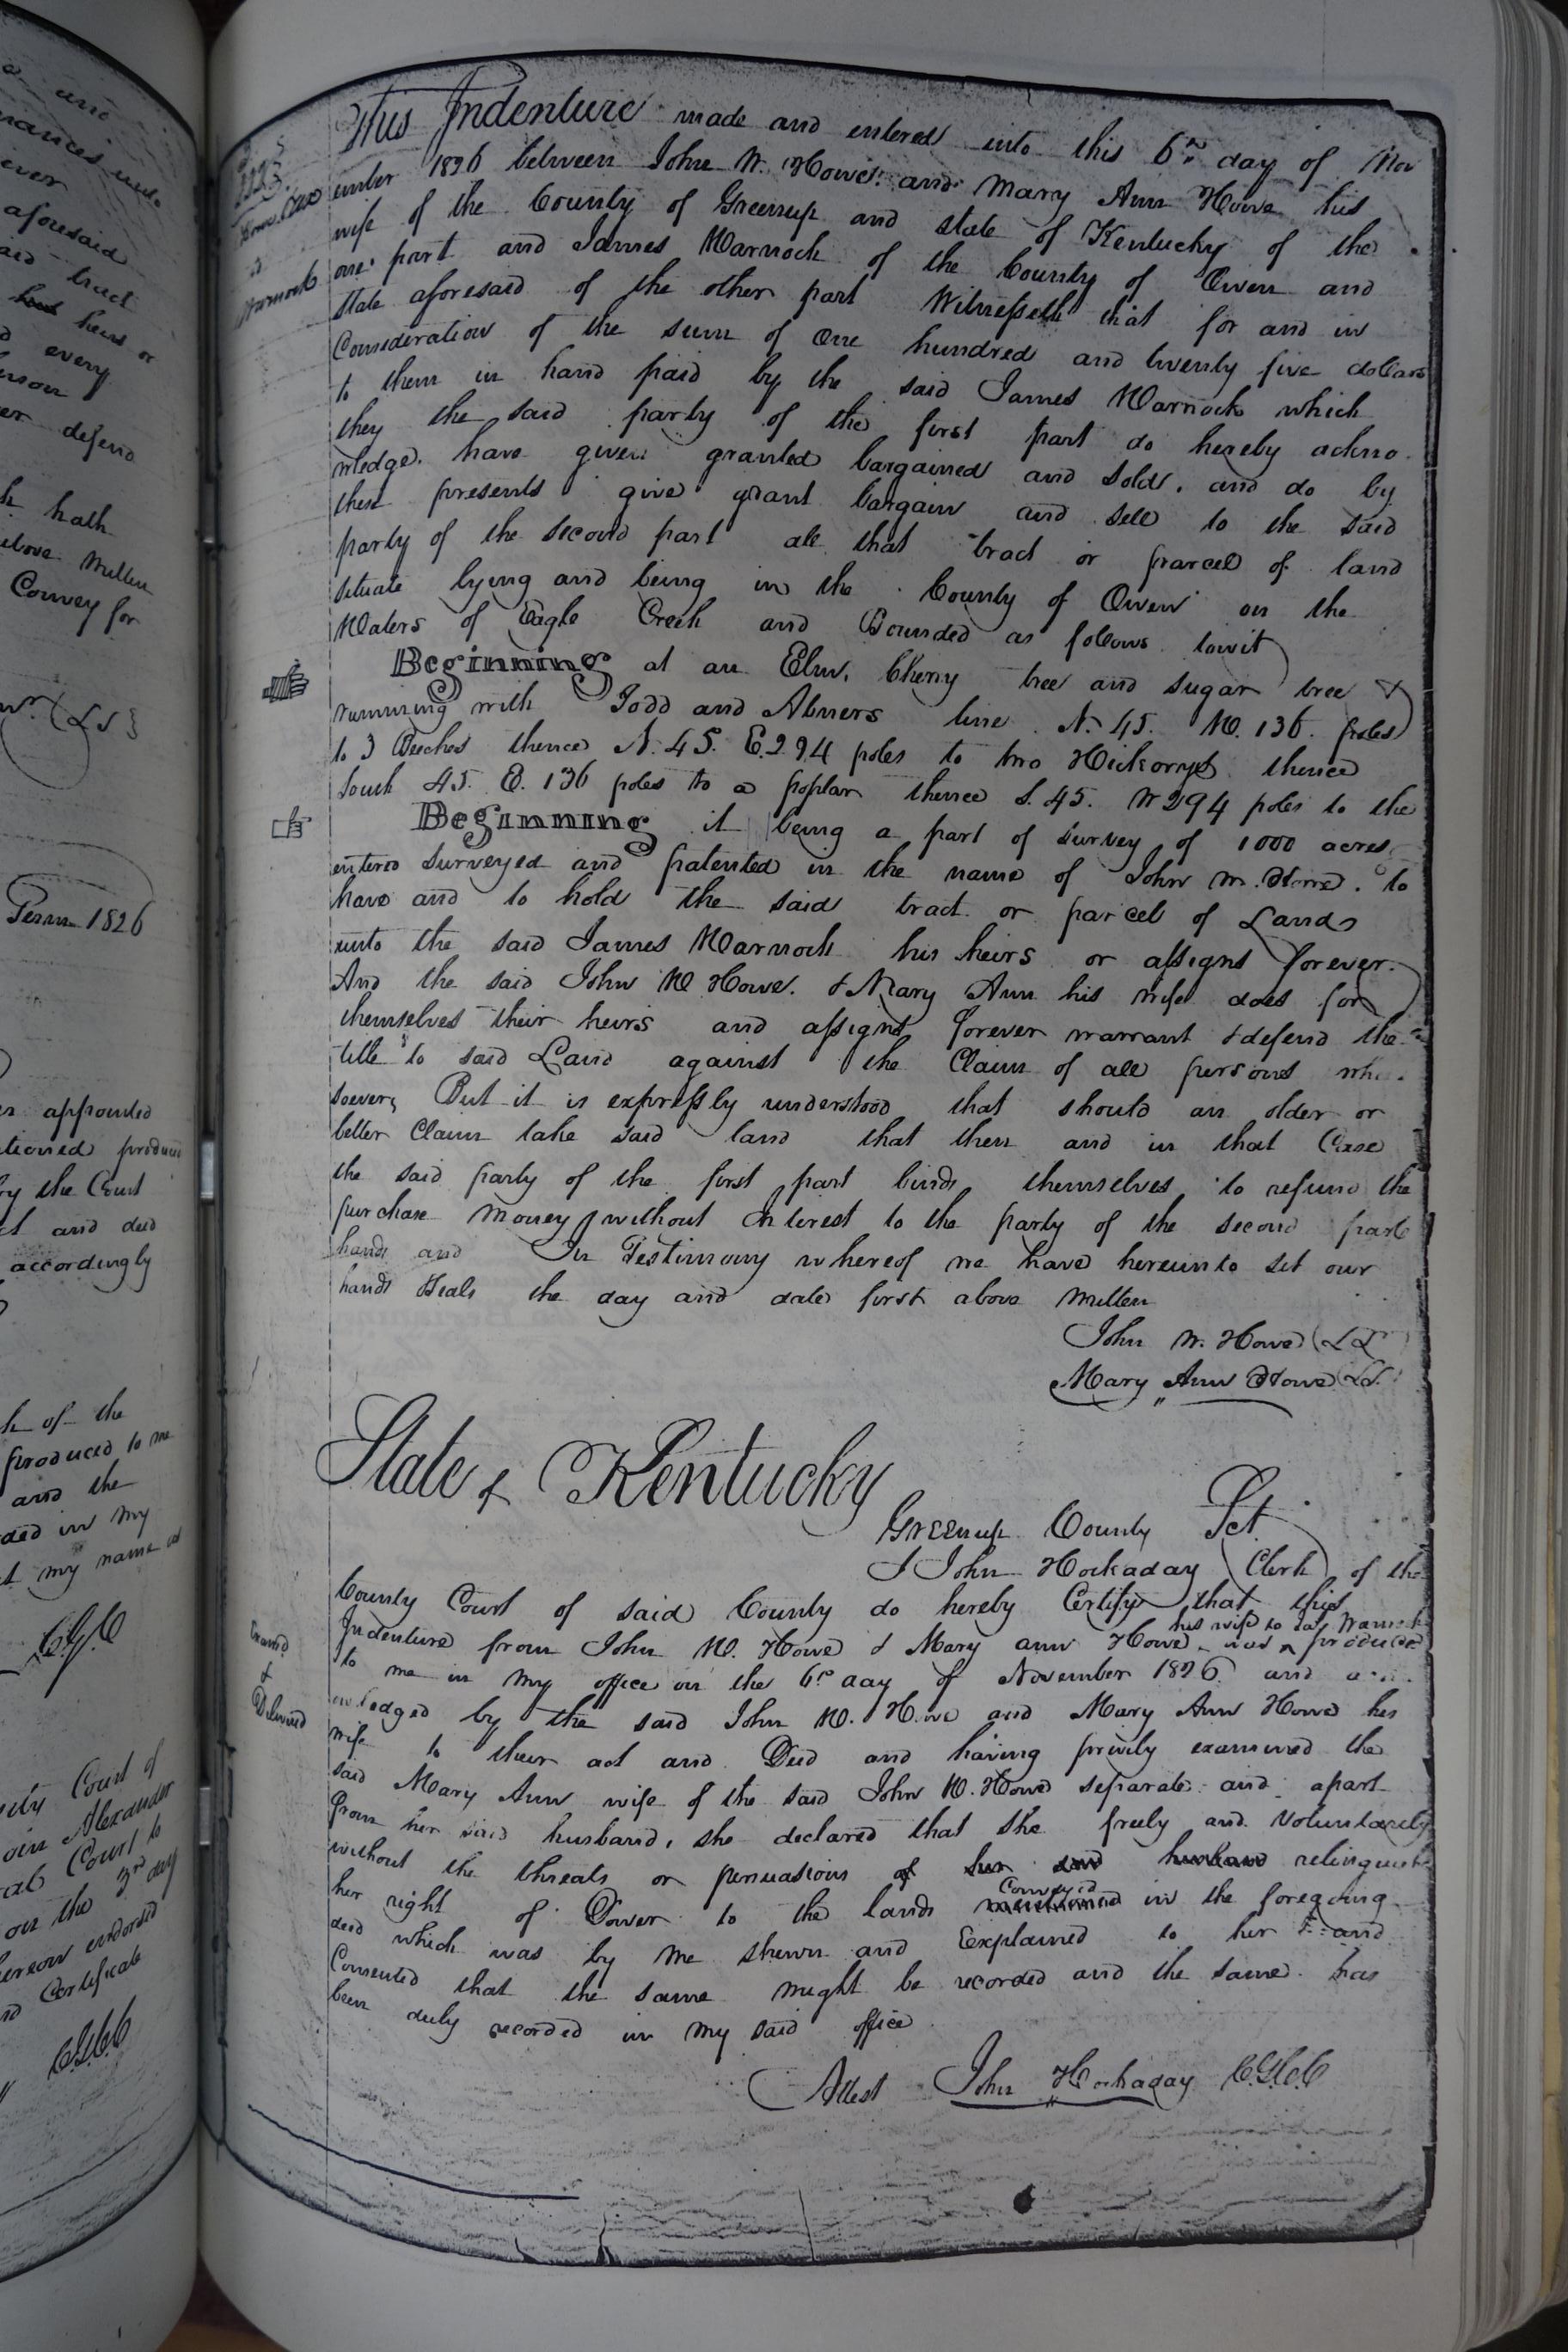 This Indenture made and entered into this 6th day of Nov
ember 1826 between John W. Howe. and Mary Ann Howe his
wife of the County of Greenup and state of Kentucky of the
one part and James Warnock of the County of Owen and
state aforesaid of the other part Witnesseth that for and in
Consideration of the sum of One hundred and twenty five dollars
to them in hand paid by the said James Warnock which
they the said party of the first part do hereby ackno
wledge. have given granted bargained and sold. and do by
these presents give grant bargain and sell to the said
party of the second part all that tract or parcel of land
situate lying and being in the County of Owen on the
Waters of Eagle Creek and Bounded as follows towit
Beginning at an Elm, Cherry tree and sugar tree &
running with Todd and Abners line N. 45. W. 136. poles
to 3 Beeches thence N. 45. E. 294 poles to two Hickorys thence
South 45. E. 136 poles to a poplar thence S. 45. W 294 poles to the
Beginning it being a part of survey of 1000 acres
entered surveyed and patented in the name of John W. Howe. to
have and to hold the said tract or parcel of Land
unto the said James Warnock his heirs or assigns forever.
And the said John W. Howe. & Mary Ann his wife does for
themselves their heirs and assigns forever warrant & defend the
title to said Land against the Claim of all persons who
soever, But it is expressly understood that should an older or
better Claim take said land that then and in that Case
the said party of the first part binds themselves to refund the
purchase money without Interest to the party of the second part
hands and In Testimony whereof we have hereunto set our
hands & seals the day and date first above written
John W. Howe (LS
Mary Ann Howe (LS.
State of Kentucky
Greenup County Sct.
I John Hockaday Clerk of the
County Court of said County do hereby Certify that this
his wife to Jas Warnock
Indenture from John W. Howe & Mary ann Howe was ^ produced
to me in my office on the 6th day of November 1826 and
owledged by the said John W. Howe and Mary Ann Howe his
wife to their act and Deed and having privily examined the
said Mary Ann wife of the said John W. Howe separate and apart
from her said husband, she declared that she freely and Voluntarily
without the threats or persuasions of her said husband relinquish
Conveyed
her right of Dower to the lands mentioned in the foregoing
deed which was by me shewn and Explained to her and
Consented that the same might be recorded and the same has
been duly recorded in my said office
Attest John Hockaday C.G.C.C